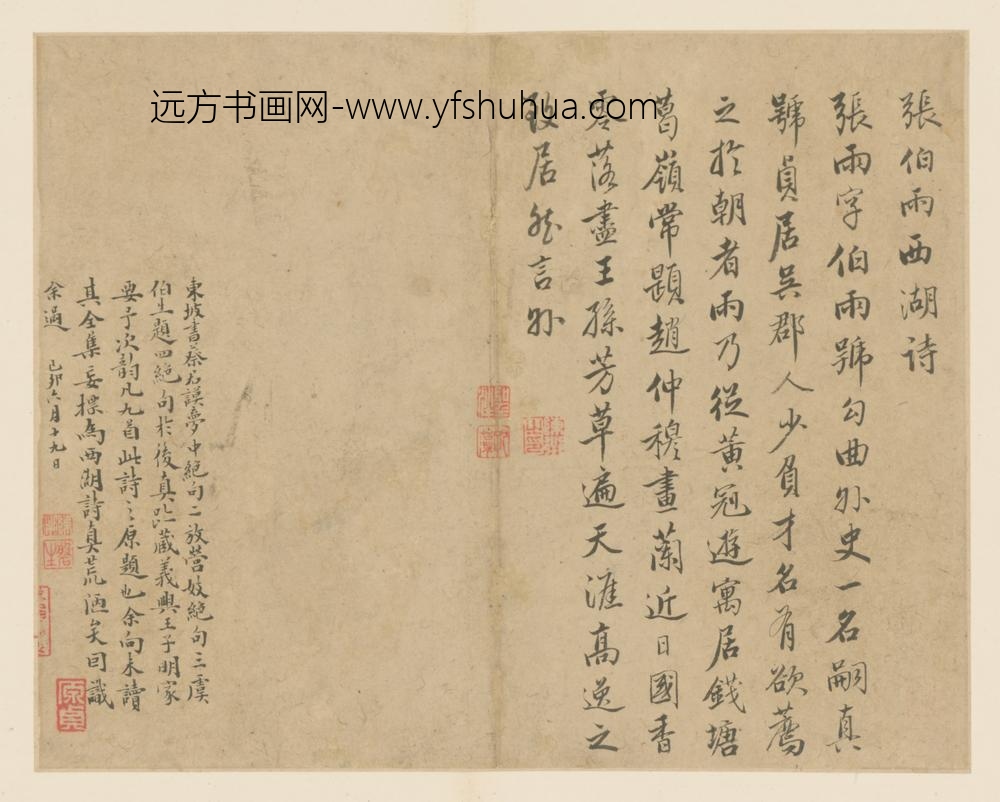 远方书画网-www.yfshuhua.com
張伯雨西湖詩
張雨字伯雨號勾曲外史一名嗣真
號貞居吳郡人少負才名有欲薦
之於朝者雨乃從黃冠遊寓居錢塘
葛嶺常題趙仲穆畫蘭近日國香
零落盡王孫芳草遍天涯高逸之
致居然言外
東坡書蔡君謨夢中絕句二放營妓絕句三虞
伯生題四絕句於後真跡藏義興王子明家
要予次韵凡九首此詩之原題也余向未讀
其全集妄標為西湖詩真荒陋矣因識
余過 己卯六月十九日
原貞